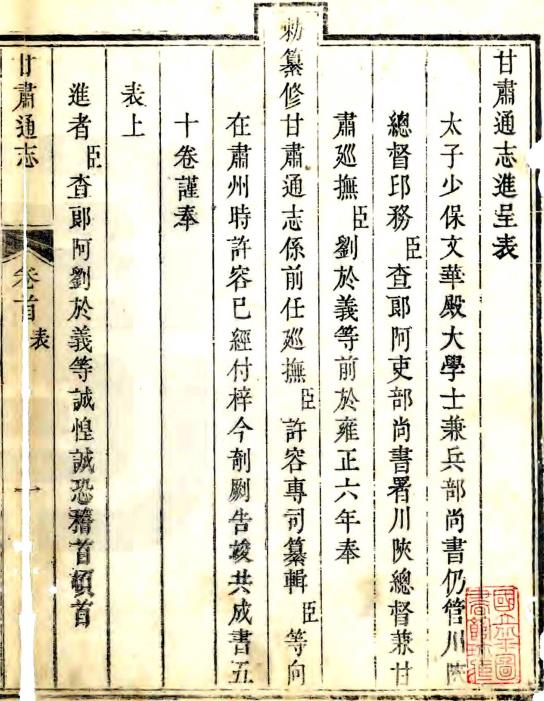 甘肅通志進呈表
太子少保文華殿大學士兼兵部尚書仍管川陝
總督印務臣查郎阿吏部尚書署川陝總督兼甘
肅廵撫臣劉於義等前於雍正六年奉
勅纂修甘肅通志係前任廵撫臣許容專司纂輯臣等向
在肅州時許容已經付梓今剞劂告竣共成書五
十卷謹奉
表上
進者臣查郎阿劉於義等誠惶誠恐稽首頓首
甘肅通志 卷首 表 一